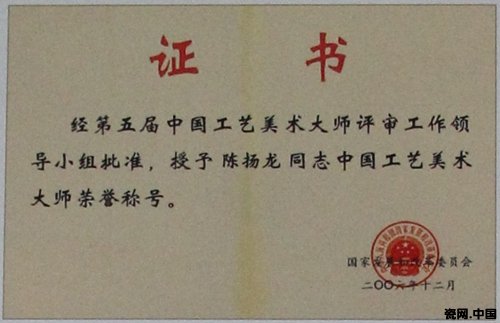 证 书
经第五届中国工艺美术大师评审工作领
导小组批准，授予 陈扬龙 同志中国工艺美术
大师荣誉称号。
国家发展和改革委员会
二〇〇六年十二月
瓷网.中国